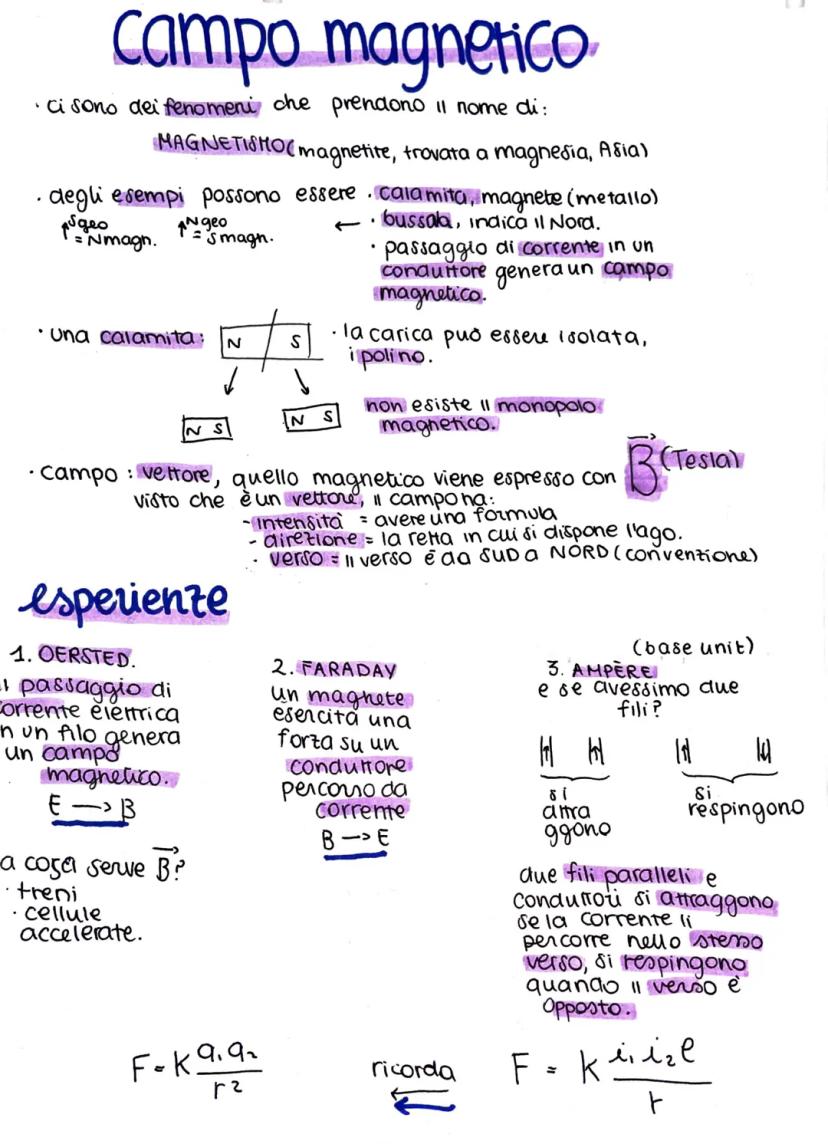 campo magnetico
· ci sono dei fenomeni che prendono il nome di:
MAGNETISMO (magnetite, trovata a magnesia, Asia)
· degli esempi possono essere · calamita, magnete (metallo)
↑Sgeo = Nmagn. ↑Ngeo = Smagn. ← · bussola, indica il Nord.
· passaggio di corrente in un
conduttore genera un campo
magnetico.
· una calamita: N S · la carica può essere isolata,
i poli no.
N S N S
non esiste il monopolo
magnetico.
· campo : vettore, quello magnetico viene espresso con B (Tesla)
visto che è un vettore, il campo ha:
- intensità = avere una formula
- direzione = la retta in cui si dispone l'ago.
· verso = il verso è da SUD a NORD (convenzione)
esperienze
1. OERSTED.
il passaggio di
corrente elettrica
in un filo genera
un campo
magnetico.
E → B
a cosa serve B?
· treni
· cellule
accelerate.
2. FARADAY
un magnete
esercita una
forza su un
conduttore
percorso da
corrente
B → E
(base unit)
3. AMPÈRE
e se avessimo due
fili?
si
attra
ggono
si
respingono
due fili paralleli e
conduttori si attraggono
se la corrente li
percorre nello stesso
verso, si respingono
quando il verso è
opposto.
F = K q₁ q₂ / r²
ricorda
F = k i₁ i₂ l / r